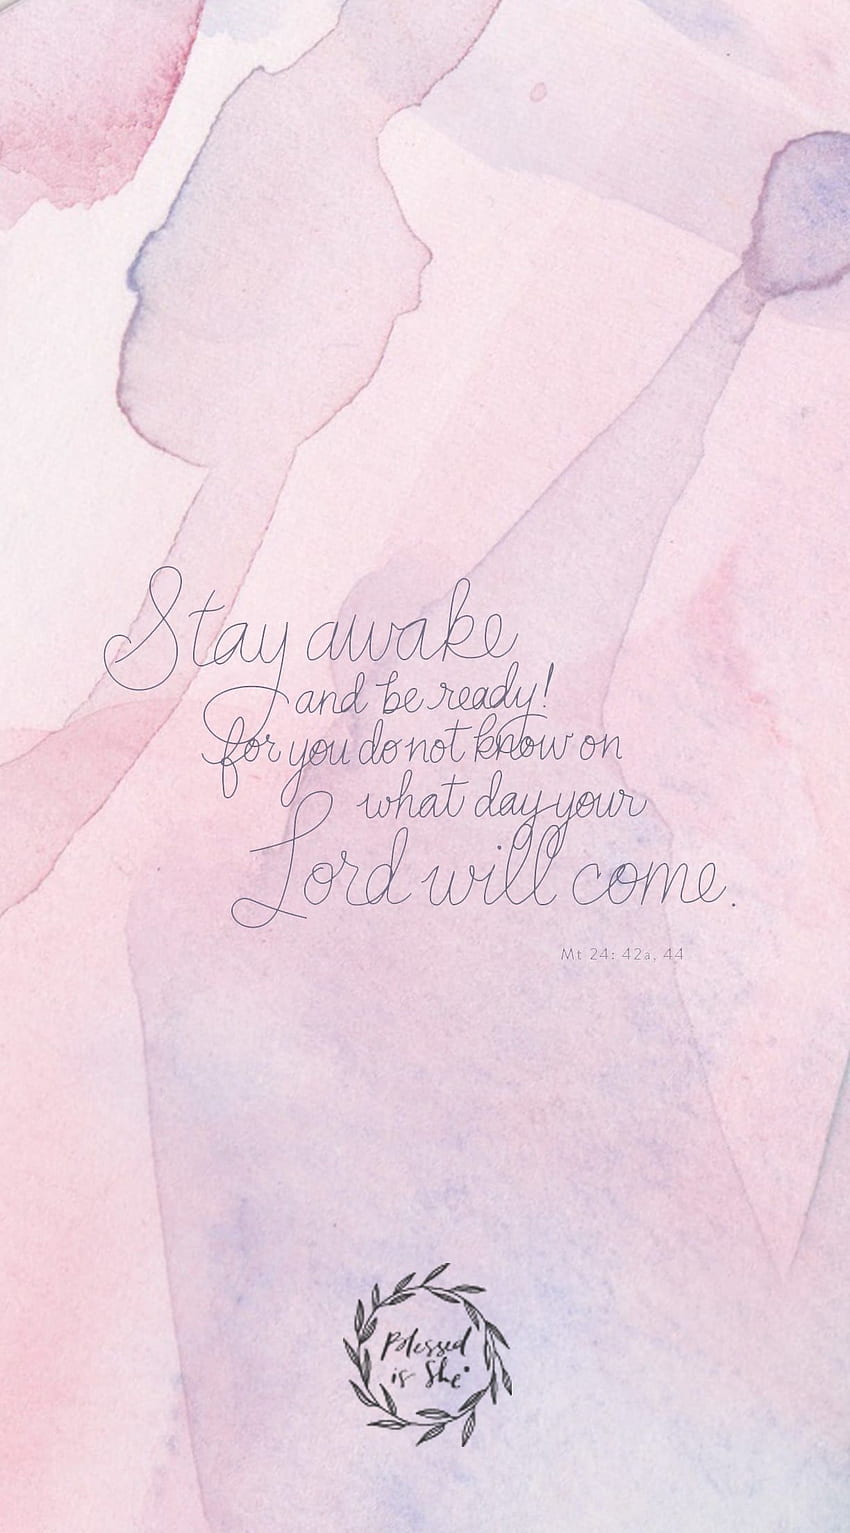 Stay awake
and be ready!
for you do not know on
what day your
Lord will come.
Mt 24: 42a, 44
Blessed
is She